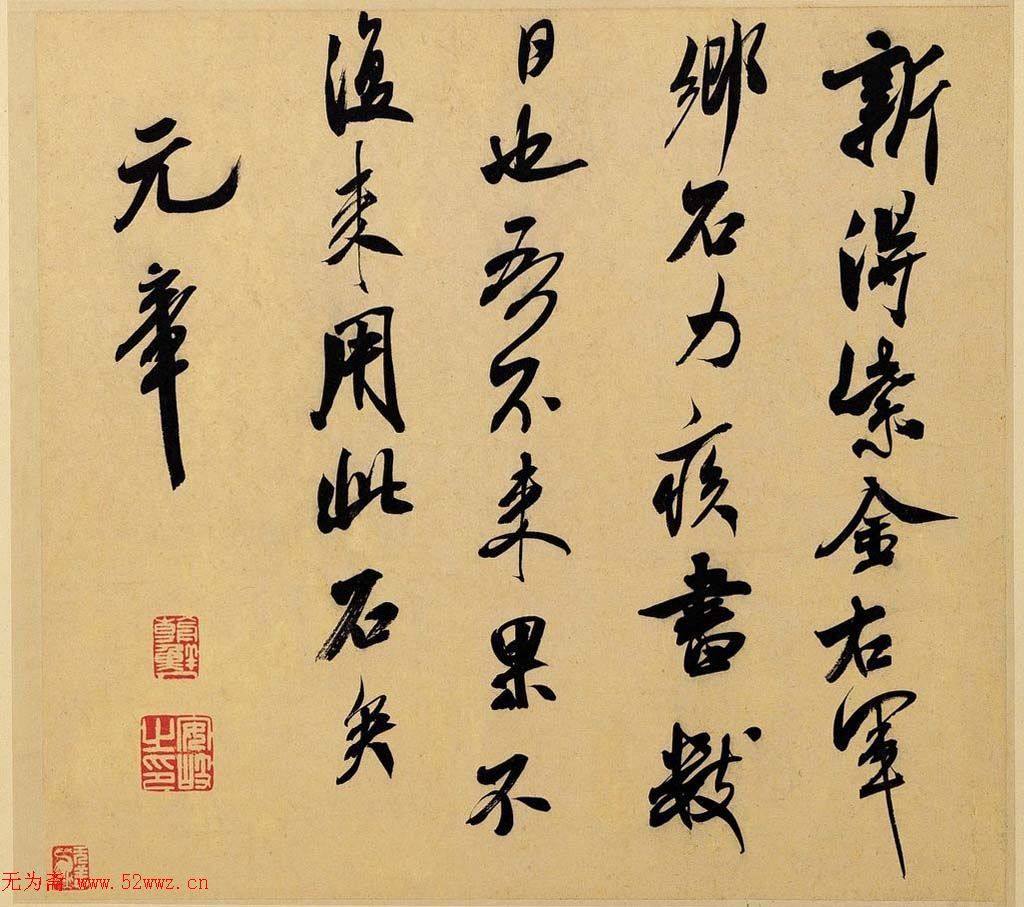 新得紫金右軍
鄉石力疾書數
日也吾不来果不
復来用此石矣
元章
朝鮮
安岐之印
无为斋 www.52wwz.cn